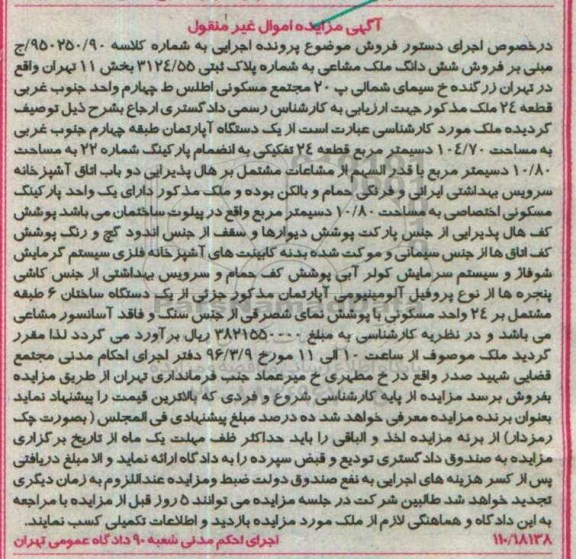 آگهی مزایده اموال غیر منقول
درخصوص اجرای دستور فروش موضوع پرونده اجرایی به شماره کلاسه ۹۵۰۲۵۰/۹۰/ج
مبنی بر فروش شش دانگ ملک مشاعی به شماره پلاک ثبتی ۳۱۲۴/۵۵ بخش ۱۱ تهران واقع
در تهران زرگنده خ سیمای شمالی پ ۲۰ مجتمع مسکونی اطلس ط چهارم واحد جنوب غربی
قطعه ۲۴ ملک مذکور جهت ارزیابی به کارشناس رسمی دادگستری ارجاع بشرح ذیل توصیف
گردیده ملک مورد کارشناسی عبارت است از یک دستگاه آپارتمان طبقه چهارم جنوب غربی
به مساحت ۱۰۴/۷۰ دسیمتر مربع قطعه ۲۴ تفکیکی به انضمام پارکینگ شماره ۲۲ به مساحت
۱۰/۸۰ دسیمتر مربع با قدر السهم از مشاعات مشتمل بر هال پذیرایی دو باب اتاق آشپزخانه
سرویس بهداشتی ایرانی و فرنگی حمام و بالکن بوده و ملک مذکور دارای یک واحد پارکینگ
مسکونی اختصاصی به مساحت ۱۰/۸۰ دسیمتر مربع واقع در پیلوت ساختمان می باشد پوشش
کف هال پذیرایی از جنس پارکت پوشش دیوارها و سقف از جنس اندود گچ و رنگ پوشش
کف اتاق ها از جنس سیمانی و موکت شده بدنه کابینت های آشپزخانه فلزی سیستم گرمایش
شوفاژ و سیستم سرمایش کولر آبی پوشش کف حمام و سرویس بهداشتی از جنس کاشی
پنجره ها از نوع پروفیل آلومینیومی آپارتمان مذکور جزئی از یک دستگاه ساختان ۶ طبقه
مشتمل بر ۲۴ واحد مسکونی با پوشش نمای شصرقی از جنس سنگ و فاقد آسانسور مشاعی
می باشد و در نظریه کارشناسی به مبلغ ۳۸۲۱۵۵۰۰۰۰ ریال برآورد می گردد لذا مقرر
گردید ملک موصوف از ساعت ۱۰ الی ۱۱ مورخ ۹۶/۳/۹ دفتر اجرای احکام مدنی مجتمع
قضایی شهید صدر واقع در خ مطهری خ میرعماد جنب فرمانداری تهران از طریق مزایده
بفروش برسد مزایده از پایه کارشناسی شروع و فردی که بالاترین قیمت را پیشنهاد نماید
بعنوان برنده مزایده معرفی خواهد شد ده درصد مبلغ پیشنهادی فی المجلس ( بصورت چک
رمزدار) از برنه مزایده اخذ و الباقی را باید حداکثر ظف مهلت یک ماه از تاریخ برگزاری
مزایده به صندوق دادگستری تودیع و قبض سپرده را به دادگاه ارائه نماید و الا مبلغ دریافتی
پس از کسر هزینه های اجرایی به نفع صندوق دولت ضبط ومزایده عنداللزوم به زمان دیگری
تجدید خواهد شد طالبین شرکت در جلسه مزایده می توانند ۵ روز قبل از مزایده با مراجعه
به این دادگاه و هماهنگی لازم از ملک مورد مزایده بازدید و اطلاعات تکمیلی کسب نمایند.
۱۱۰/۱۸۱۳۸ اجرای احکم مدنی شعبه ۹۰ دادگاه عمومی تهران